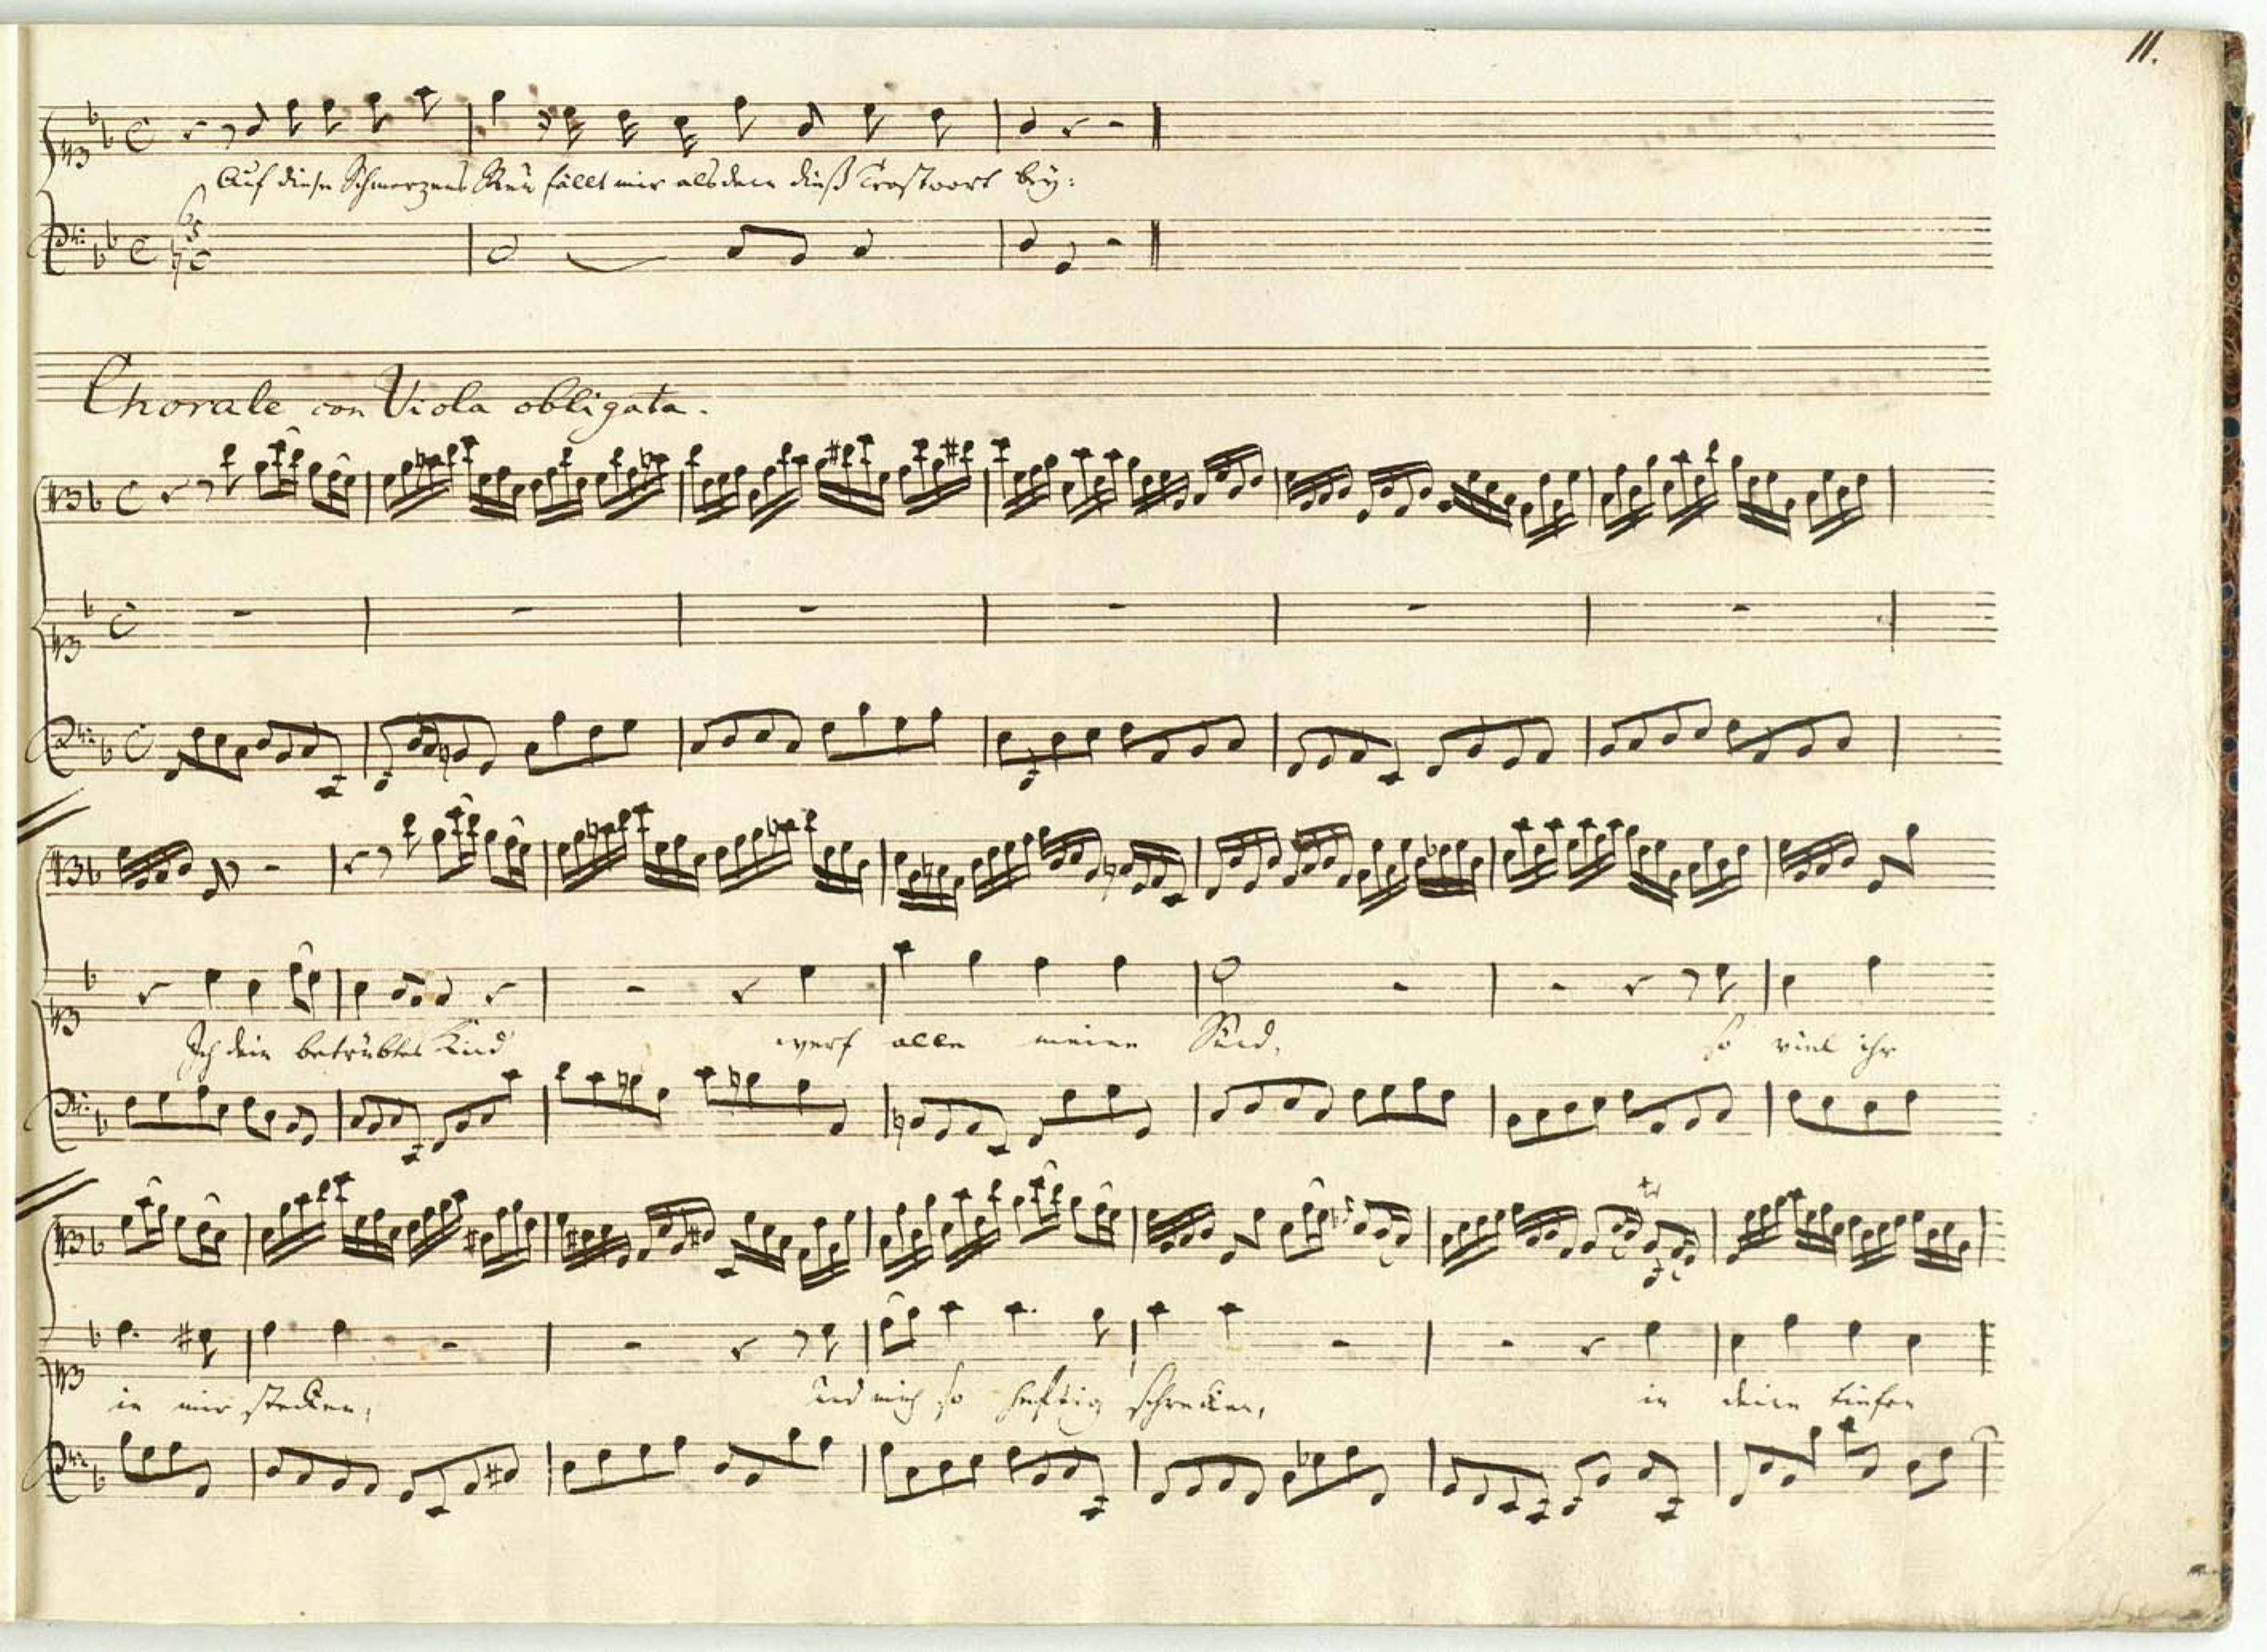 11.
Auf diese Schmerzens Reu fällt mir alsdenn dieß Trostwort bey:
Chorale con Viola obligata.
Ich dein betrübtes Kind werf alle meine Sünd, so viel ihr
in mir stecken, und mich so heftig schrecken, in deine tiefen